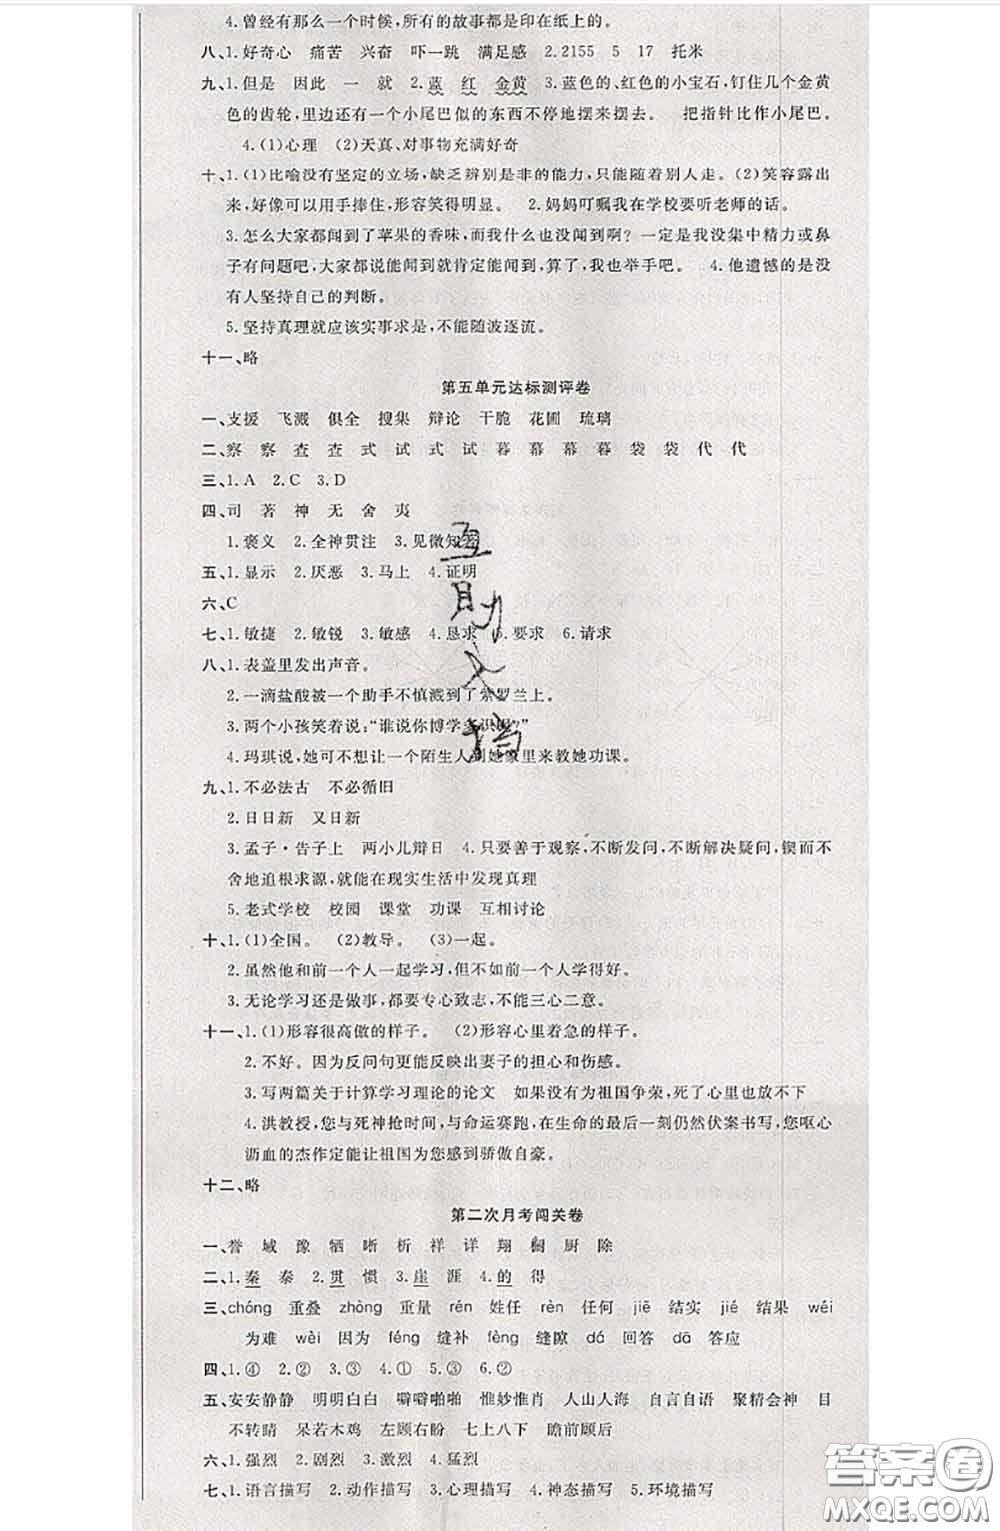 4.曾经有那么一个时候,所有的故事都是印在纸上的。
八、1.好奇心 痛苦 兴奋 吓一跳 满足感 2.2155 5 17 托米
九、1.但是 因此 一 就 2.蓝 红 金黄 3.蓝色的、红色的小宝石,钉住几个金黄
色的齿轮,里边还有一个小尾巴似的东西不停地摆来摆去。 把指针比作小尾巴。
4.(1)心理 (2)天真、对事物充满好奇
十、1.(1)比喻没有坚定的立场,缺乏辨别是非的能力,只能随着别人走。(2)笑容露出
来,好像可以用手捧住,形容笑得明显。 2.妈妈叮嘱我在学校要听老师的话。
3.怎么大家都闻到了苹果的香味,而我什么也没闻到啊?一定是我没集中精力或鼻
子有问题吧,大家都说能闻到就肯定能闻到,算了,我也举手吧。 4.他遗憾的是没
有人坚持自己的判断。
5.坚持真理就应该实事求是,不能随波逐流。
十一、略
第五单元达标测评卷
一、支援 飞溅 俱全 搜集 辩论 干脆 花圃 琉璃
二、察 察 查 查 式 试 式 试 暮 幕 幕 暮 袋 袋 代 代
三、1.A 2.C 3.D
四、司 著 神 无 舍 夷
1.褒义 2.全神贯注 3.见微知著
五、1.显示 2.厌恶 3.马上 4.证明
六、C
七、1.敏捷 2.敏锐 3.敏感 4.恳求 5.要求 6.请求
八、1.表盖里发出声音。
2.一滴盐酸被一个助手不慎溅到了紫罗兰上。
3.两个小孩笑着说:“谁说你博学多识呢?”
4.玛琪说,她可不想让一个陌生人到她家里来教她功课。
九、1.不必法古 不必循旧
2.日日新 又日新
3.孟子·告子上 两小儿辩日 4.只要善于观察,不断发问,不断解决疑问,锲而不
舍地追根求源,就能在现实生活中发现真理
5.老式学校 校园 课堂 功课 互相讨论
十、1.(1)全国。 (2)教导。 (3)一起。
2.虽然他和前一个人一起学习,但不如前一个人学得好。
3.无论学习还是做事,都要专心致志,不能三心二意。
十一、1.(1)形容很高傲的样子。 (2)形容心里着急的样子。
2.不好。因为反问句更能反映出妻子的担心和伤感。
3.写两篇关于计算学习理论的论文 如果没有为祖国争荣,死了心里也放不下
4.洪教授,您与死神抢时间,与命运赛跑,在生命的最后一刻仍然伏案书写,您呕心
沥血的杰作定能让祖国为您感到骄傲自豪。
十二、略
第二次月考闯关卷
一、誉 域 豫 牺 晰 析 祥 详 翔 橱 厨 除
二、1.秦 泰 2.贯 惯 3.崖 涯 4.的 得
三、chóng 重叠 zhòng 重量 rén 姓任 rèn 任何 jiē 结实 jié 结果 wéi
为难 wèi 因为 féng 缝补 fèng 缝隙 dá 回答 dā 答应
四、1.④ 2.② 3.③ 4.① 5.③ 6.②
五、安安静静 明明白白 噼噼啪啪 惟妙惟肖 人山人海 自言自语 聚精会神 目
不转睛 呆若木鸡 左顾右盼 七上八下 瞻前顾后
六、1.强烈 2.剧烈 3.激烈 4.猛烈
七、1.语言描写 2.动作描写 3.心理描写 4.神态描写 5.环境描写
答案圈
MXQE.COM